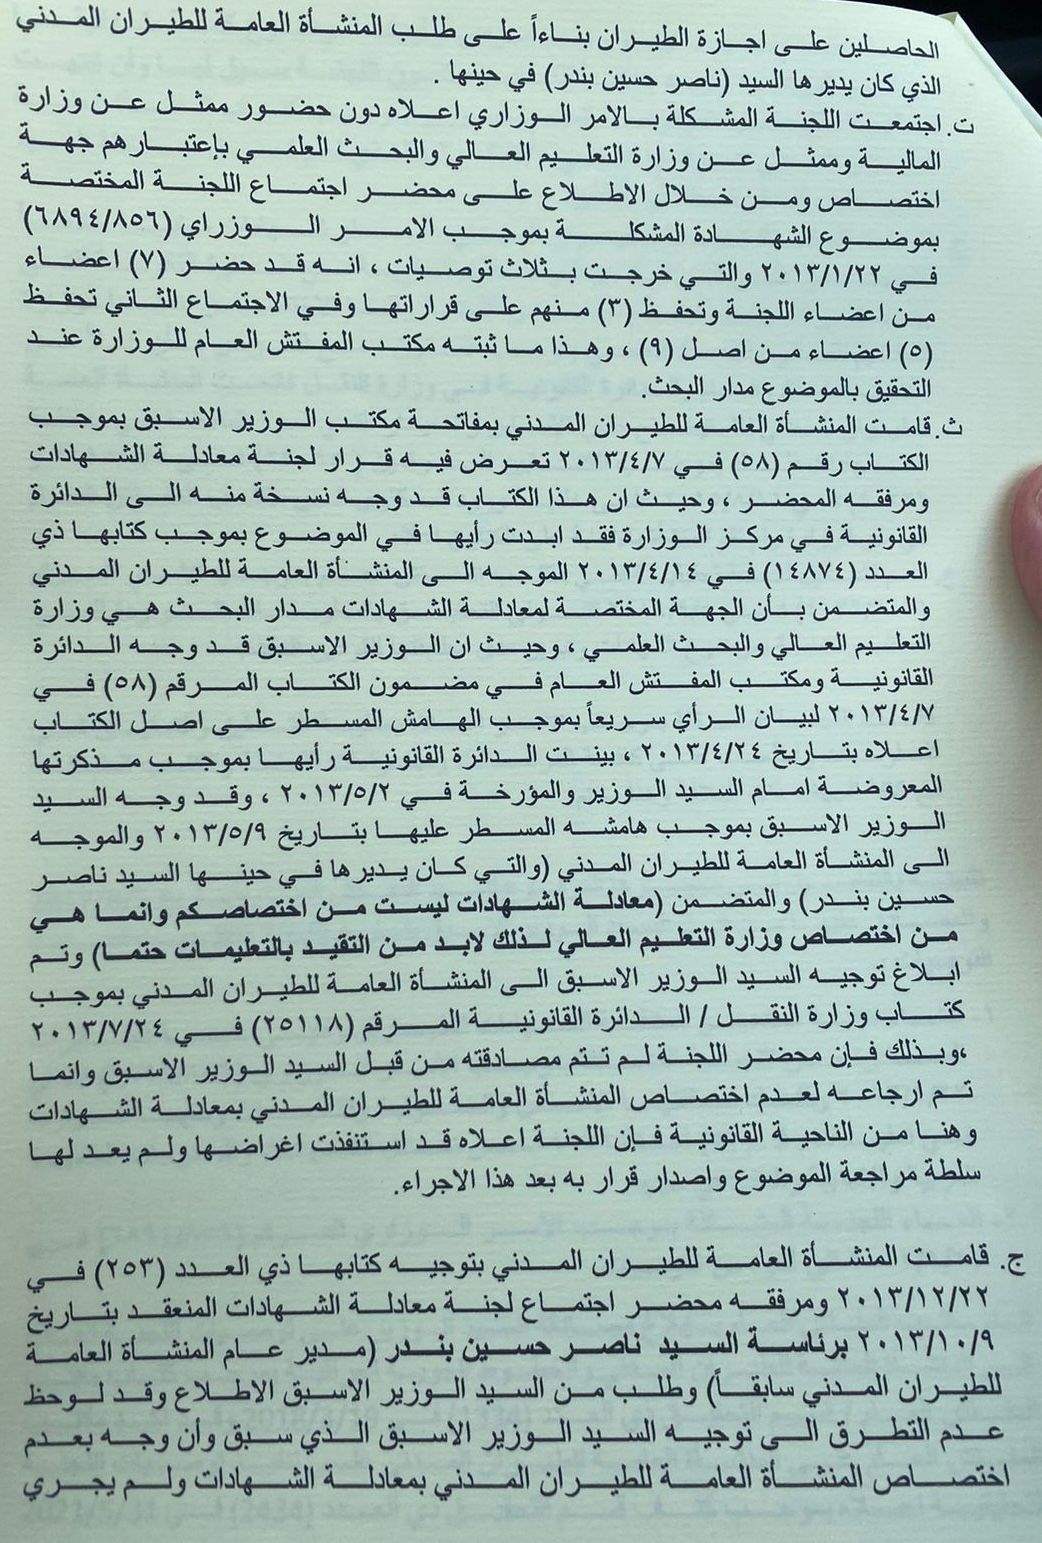 الحاصلين على اجازة الطيران بناءاً على طلب المنشأة العامة للطيران المدني
الذي كان يديرها السيد (ناصر حسين بندر) في حينها .
ت. اجتمعت اللجنة المشكلة بالامر الوزاري اعلاه دون حضور ممثل عن وزارة
المالية وممثل عن وزارة التعليم العالي والبحث العلمي بإعتبارهم جهة
اختصاص ومن خلال الاطلاع على محضر اجتماع اللجنة المختصة
بموضوع الشهادة المشكلة بموجب الامر الوزراي (٦٨٩٤/٨٥٦)
في ٢٠١٣/١/٢٢ والتي خرجت بثلاث توصيات ، انه قد حضر (٧) اعضاء
من اعضاء اللجنة وتحفظ (٣) منهم على قراراتها وفي الاجتماع الثاني تحفظ
(٥) اعضاء من اصل (٩) ، وهذا ما ثبته مكتب المفتش العام للوزارة عند
التحقيق بالموضوع مدار البحث.
ث. قامت المنشأة العامة للطيران المدني بمفاتحة مكتب الوزير الاسبق بموجب
الكتاب رقم (٥٨) في ٢٠١٣/٤/٧ تعرض فيه قرار لجنة معادلة الشهادات
ومرفقه المحضر ، وحيث ان هذا الكتاب قد وجه نسخة منه الى الدائرة
القانونية في مركز الوزارة فقد ابدت رأيها في الموضوع بموجب كتابها ذي
العدد (١٤٨٧٤) في ٢٠١٣/٤/١٤ الموجه الى المنشأة العامة للطيران المدني
والمتضمن بأن الجهة المختصة لمعادلة الشهادات مدار البحث هي وزارة
التعليم العالي والبحث العلمي ، وحيث ان الوزير الاسبق قد وجه الدائرة
القانونية ومكتب المفتش العام في مضمون الكتاب المرقم (٥٨) في
٢٠١٣/٤/٧ لبيان الرأي سريعاً بموجب الهامش المسطر على اصل الكتاب
اعلاه بتاريخ ٢٠١٣/٤/٢٤ ، بينت الدائرة القانونية رأيها بموجب مذكرتها
المعروضة امام السيد الوزير والمؤرخة في ٢٠١٣/٥/٢ ، وقد وجه السيد
الوزير الاسبق بموجب هامشه المسطر عليها بتاريخ ٢٠١٣/٥/٩ والموجه
الى المنشأة العامة للطيران المدني (والتي كان يديرها في حينها السيد ناصر
حسين بندر) والمتضمن (معادلة الشهادات ليست من اختصاصكم وانما هي
من اختصاص وزارة التعليم العالي لذلك لابد من التقيد بالتعليمات حتما) وتم
ابلاغ توجيه السيد الوزير الاسبق الى المنشأة العامة للطيران المدني بموجب
كتاب وزارة النقل / الدائرة القانونية المرقم (٢٥١١٨) في ٢٠١٣/٧/٢٤
،وبذلك فإن محضر اللجنة لم تتم مصادقته من قبل السيد الوزير الاسبق وانما
تم ارجاعه لعدم اختصاص المنشأة العامة للطيران المدني بمعادلة الشهادات
وهنا من الناحية القانونية فإن اللجنة اعلاه قد استنفذت اغراضها ولم يعد لها
سلطة مراجعة الموضوع واصدار قرار به بعد هذا الاجراء.
ج. قامت المنشأة العامة للطيران المدني بتوجيه كتابها ذي العدد (٢٥٣) في
٢٠١٣/١٢/٢٢ ومرفقه محضر اجتماع لجنة معادلة الشهادات المنعقد بتاريخ
٢٠١٣/١٠/٩ برئاسة السيد ناصر حسين بندر (مدير عام المنشأة العامة
للطيران المدني سابقاً) وطلب من السيد الوزير الاسبق الاطلاع وقد لوحظ
عدم التطرق الى توجيه السيد الوزير الاسبق الذي سبق وأن وجه بعدم
اختصاص المنشأة العامة للطيران المدني بمعادلة الشهادات ولم يجري